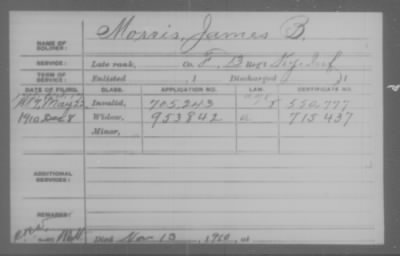 Morris, James B.
NAME OF SOLDIER:
SERVICE: Late rank, Co. F, 13 Reg't Ky. Inf
TERM OF SERVICE: Enlisted , 1 Discharged , 1
DATE OF FILING. CLASS. APPLICATION NO. LAW. CERTIFICATE NO.
May 22 Invalid, 705,243 550,777
1910 Dec 8 Widow, 953842 a 715437
Minor,
ADDITIONAL SERVICES:
REMARKS:
Died Nov 13, 1910, at